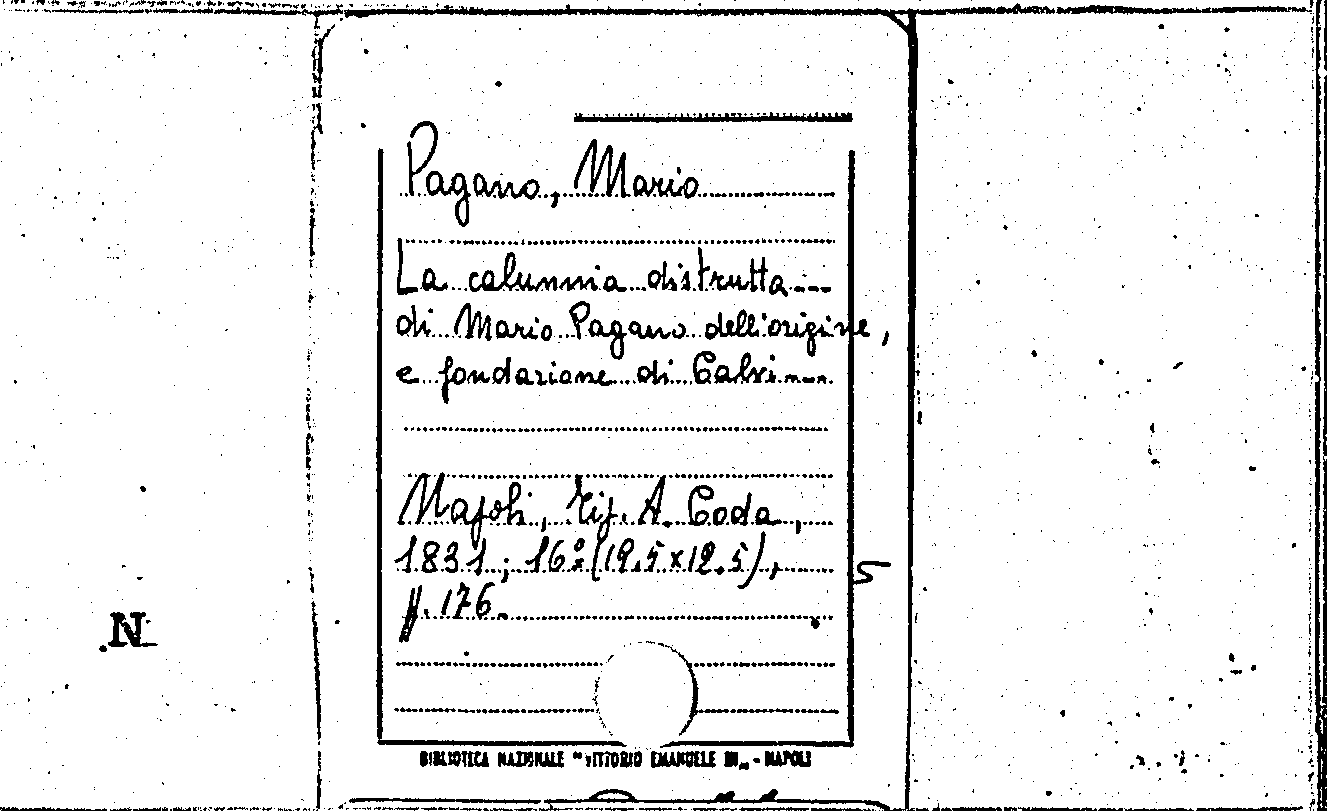 Pagano, Mario
La calunnia distrutta...
di Mario Pagano dell'origine,
e fondazione di Calvi....
Napoli, Tip. A. Coda,
1831; 16º (19.5x12.5),
5
pp. 176.
N
BIBLIOTECA NAZIONALE "VITTORIO EMANUELE III„ - NAPOLI